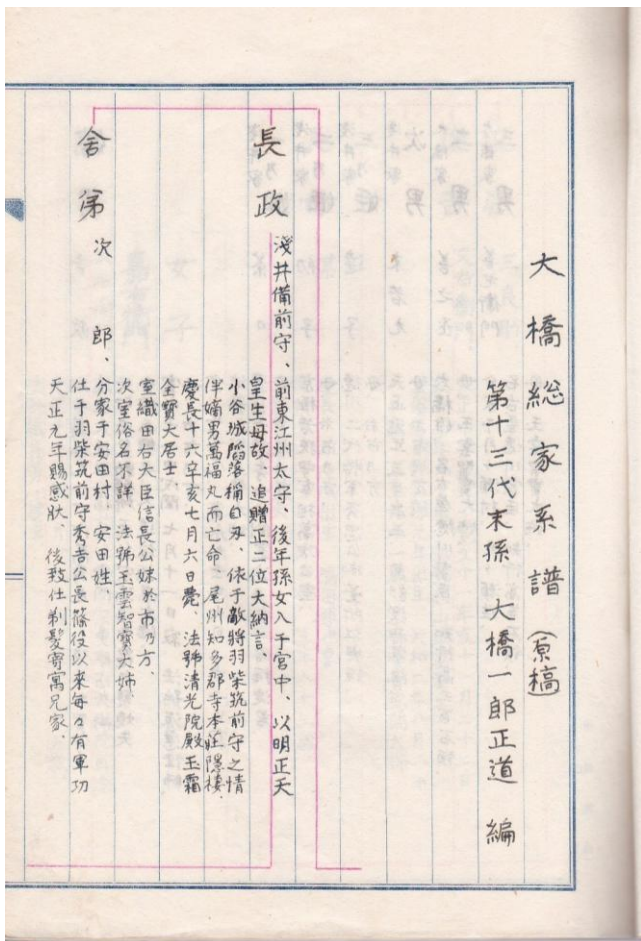 大橋総家系譜(原稿)
第十三代末孫 大橋一郎正道 編
長政
淺井備前守、前東江州太守、後年孫女入于宮中、以明正天
皇生母故、追贈正二位大納言、
小谷城陷落稱白刃、依于敵將羽柴筑前守之情
伴嫡男萬福丸而亡命、尾州知多郡寺本荘隱棲、
慶長十六辛亥七月六日薨、法號清光院殿玉霜
全寶大居士、
室織田右大臣信長公妹於市乃方、
次室俗名不詳、法號玉雲智寶大姉
舍弟
次郎、
分家于安田村、安田姓、
仕于羽柴筑前守秀吉公長篠役以来每々有軍功
天正元年賜感狀、後致仕剃髮寄寓兄家、